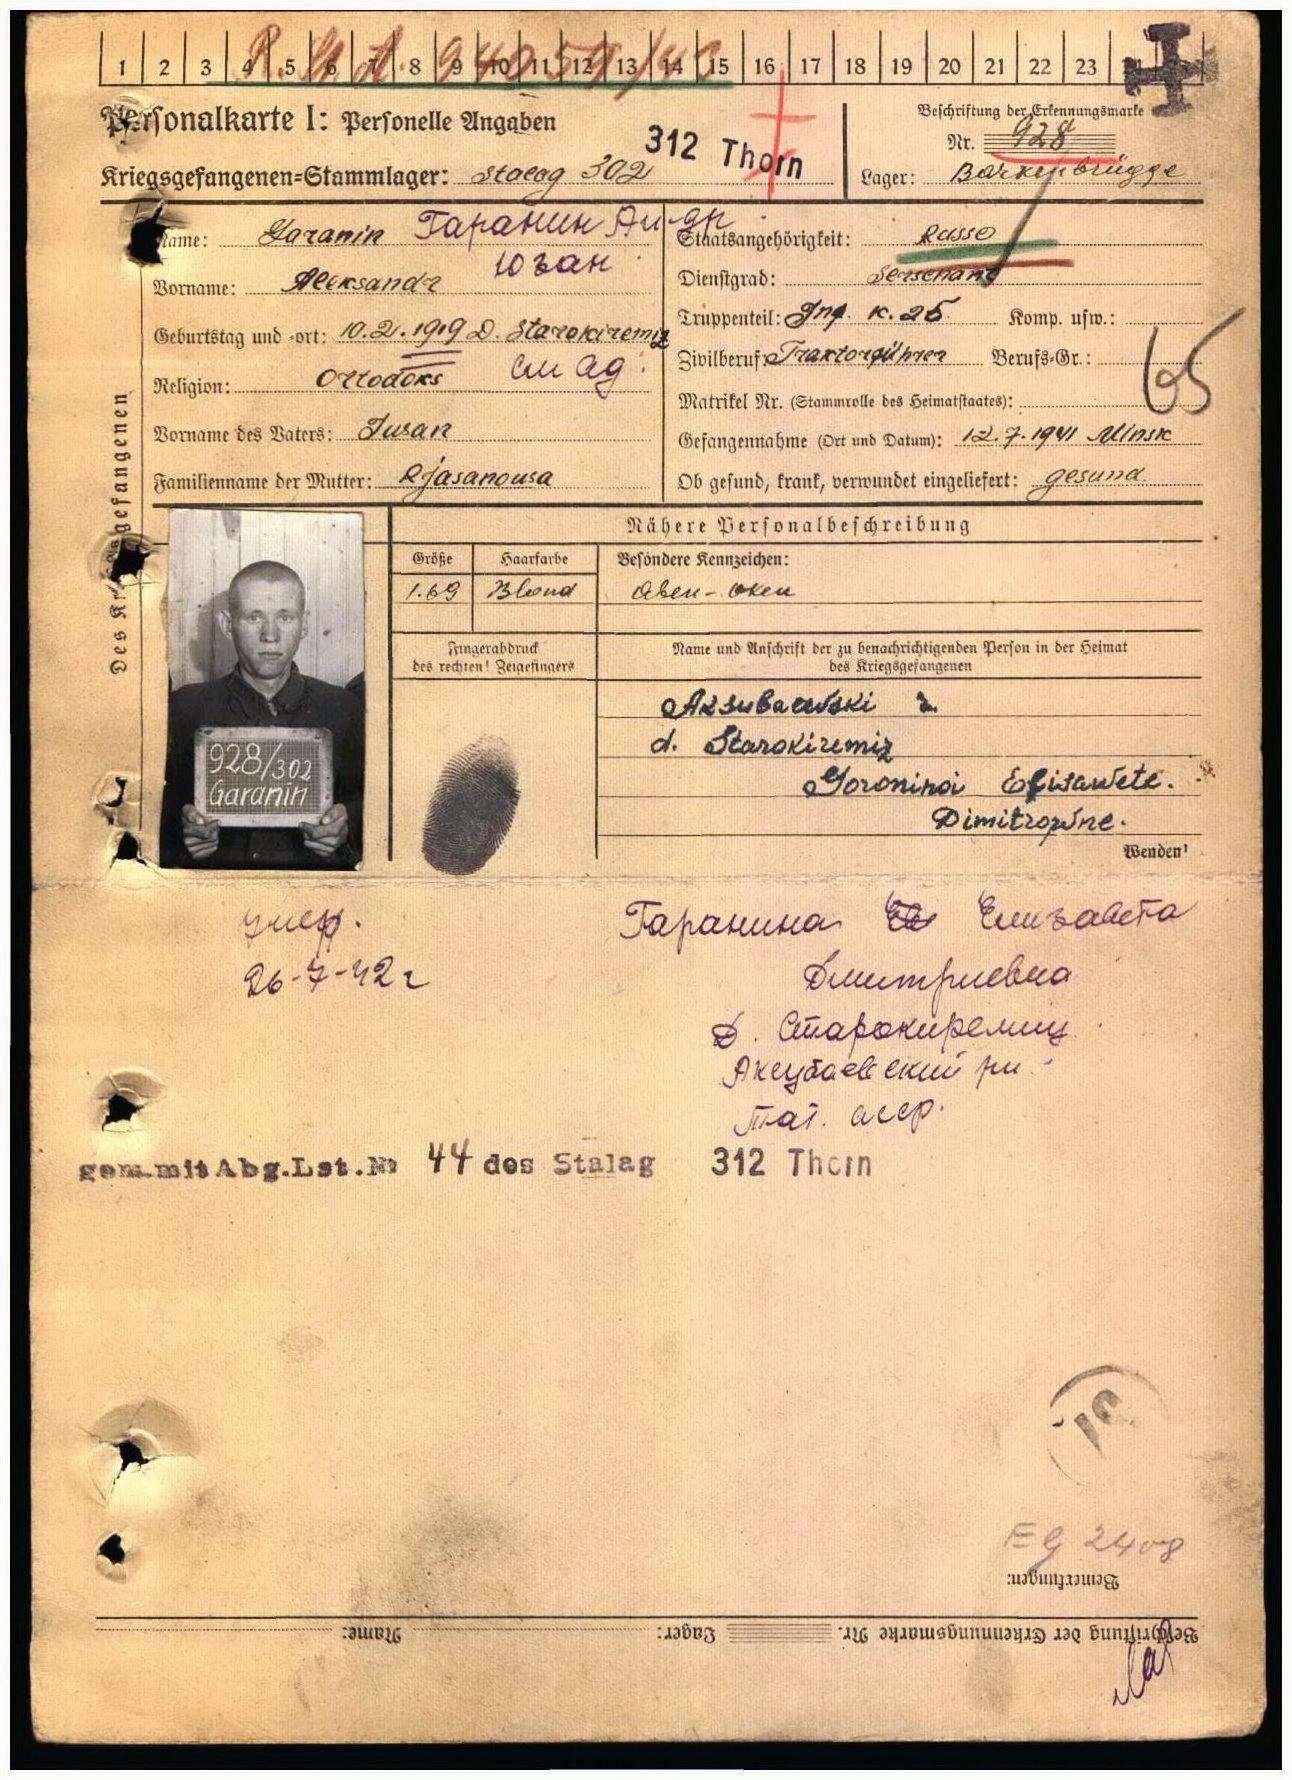 R. St. A. 94059/43
1 2 3 4 5 6 7 8 9 10 11 12 13 14 15 16 17 18 19 20 21 22 23
Personalkarte I: Personelle Angaben
312 Thorn
Beschriftung der Erkennungsmarke
Nr. 928
Kriegsgefangenen=Stammlager: Stalag 302
Lager: Barkenbrügge
Des Kriegsgefangenen
Name: Garanin Гаранин
Staatsangehörigkeit: Russe
Vorname: Aleksandr
Dienstgrad: Serschant
Geburtstag und -ort: 10.2.1919 D. Starokiremiz
Truppenteil: Inf. K. 25 Komp. usw.:
Religion: Ortodoks
Zivilberuf: Traktorführer Berufs-Gr.:
65
Matrikel Nr. (Stammrolle des Heimatstaates):
Vorname des Vaters: Iwan
Gefangennahme (Ort und Datum): 12.7.1941 Minsk
Familienname der Mutter: Rjasanowa
Ob gesund, krank, verwundet eingeliefert: gesund
Nähere Personalbeschreibung
Größe Haarfarbe Besondere Kennzeichen:
1.69 Blond
928/302
Garanin
Fingerabdruck
des rechten! Zeigefingers
Name und Anschrift der zu benachrichtigenden Person in der Heimat
des Kriegsgefangenen
Aksubaewski r.
d. Starokiremiz
Goroninoi Elisawete.
Dimitrowne.
Wenden!
умер.
26-7-42 г
Гаранина Елизавета
Дмитриевна
Д. Старокиремиц
Аксубаевский рн.
Тат. асср.
gem. mit Abg. Lst. № 44 des Stalag 312 Thorn
EG 2408
Bemerkungen:
Beschriftung der Erkennungsmarke Nr. Lager: Name: